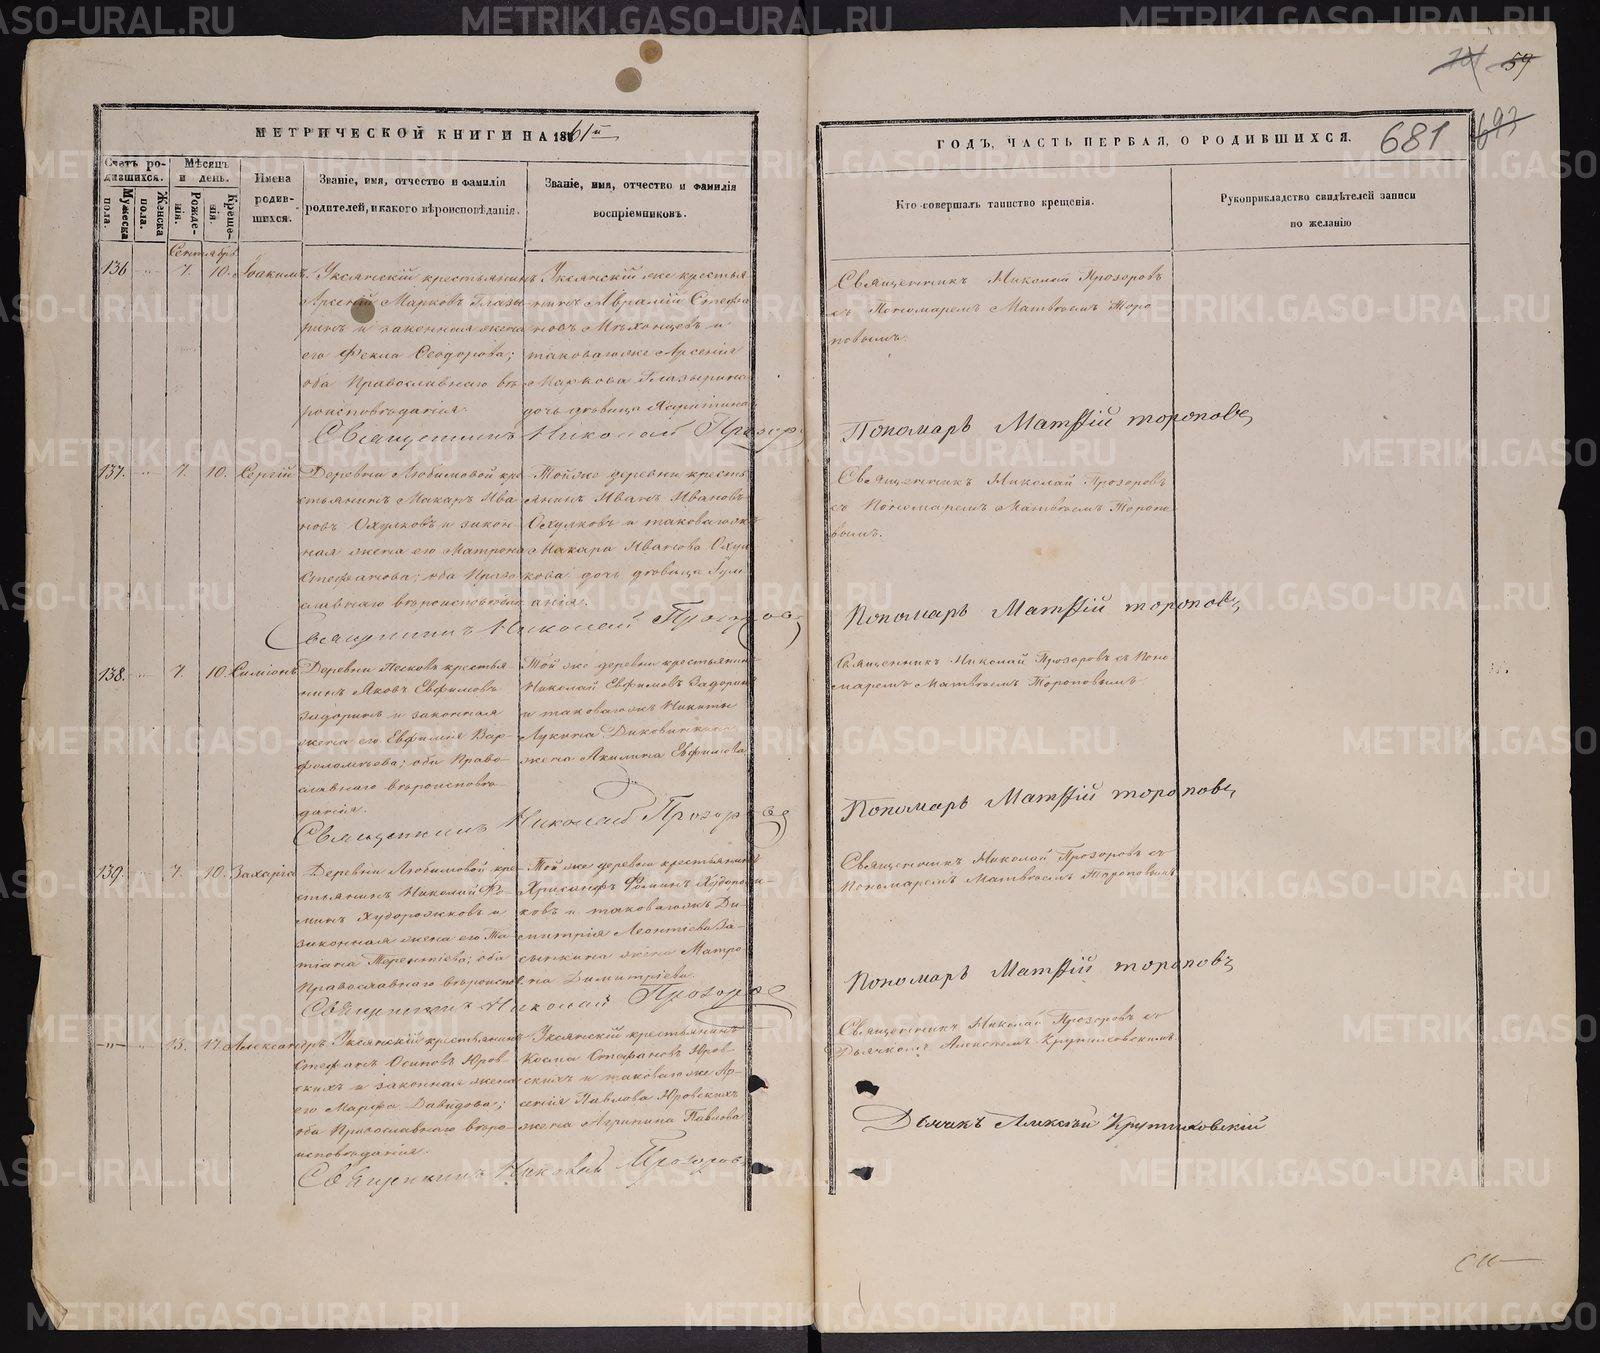 МЕТРИЧЕСКОЙ КНИГИ НА 1861й
ГОДЪ, ЧАСТЬ ПЕРВАЯ, О РОДИВШИХСЯ.
681
59
693
Счетъ родившихся.
Мужеска пола.
Женска пола.
Мѣсяцъ и день.
Рожденія.
Крещенія.
Имена родившихся.
Званіе, имя, отчество и фамилія
родителей, и какого вѣроисповѣданія.
Званіе, имя, отчество и фамилія
воспріемниковъ.
Кто совершалъ таинство крещенія.
Рукоприкладство свидѣтелей записи
по желанію
Сентябрь
136 7. 10. Іоакимъ.
Уксянскій крестьянинъ
Арсеній Марковъ Глазы-
ринъ и законная жена
его Фекла Ѳеодорова;
оба Православнаго вѣ-
роисповѣданія.
Уксянскій же крестья
нинъ Авраамій Стефа
новъ Мѣхонцевъ и
таковагоже Арсенія
Маркова Глазырина
дочь дѣвица
Священникъ Николай Прозоровъ
съ Пономаремъ Матвѣемъ Торо
повымъ.
Священникъ Николай Прозоров
Пономарь Матѳій тороповъ
137. 7. 10. Сергій
Деревни Любимовой кре
стьянинъ Макаръ Ива
новъ Охулковъ и закон
ная жена его Матрона
Стефанова; оба Право
славнаго вѣроисповѣданія.
Тойже деревни кресть
янинъ Иванъ Ивановъ
Охулковъ и таковагожъ
Макара Иванова Охул
кова дочь дѣвица
Священникъ Николай Прозоровъ
съ Пономаремъ Матвѣемъ Торопо
вымъ.
Священникъ Николай Прозоровъ
Пономарь Матѳій тороповъ
138. 7. 10. Симіонъ
Деревни Песковъ крестья-
нинъ Яковъ Евфимовъ
Задоринъ и законная
жена его Евфимія Вар-
ѳоломѣева; оба Право-
славнаго вѣроисповѣ-
данія.
Той же деревни крестьянин
Николай Евфимовъ Задорин
и таковагожъ Никиты
Лукина
жена Акилина Евфимова
Священникъ Николай Прозоровъ съ Поно
маремъ Матвѣемъ Тороповымъ.
Священникъ Николай Прозоровъ
Пономарь Матѳій тороповъ
139. 7. 10. Захарія
Деревни Любимовой кре-
стьянинъ Николай Ѳо-
минъ Худорожковъ и
законная жена его Та-
тіана Терентіева; оба
Православнаго вѣроиспов.
Той же деревни крестьянинъ
Хрисанфъ Ѳоминъ
ковъ и таковагожъ Ди-
митрія Леонтіева За-
сыпкина жена Матро-
на Димитріева.
Священникъ Николай Прозоровъ съ
Пономаремъ Матвѣемъ Тороповымъ
Священникъ Николай Прозоров
Пономарь Матѳій тороповъ
-"- 13. 17. Александръ
Уксянскій крестьянинъ
Стефанъ Осиповъ Юров-
скихъ и законная жена
его Марфа Давидова;
оба Православнаго вѣро-
исповѣданія.
Уксянскій крестьянинъ
Косма Стефановъ Юров-
скихъ и таковагоже Ар-
сенія Павлова Юровскихъ
жена Агрипина Павлова
Священникъ Николай Прозоровъ съ
Дьячкомъ Алексѣемъ Крутиховскимъ
Священникъ Николай Прозоровъ
Дьячекъ Алексѣй Крутиховскій